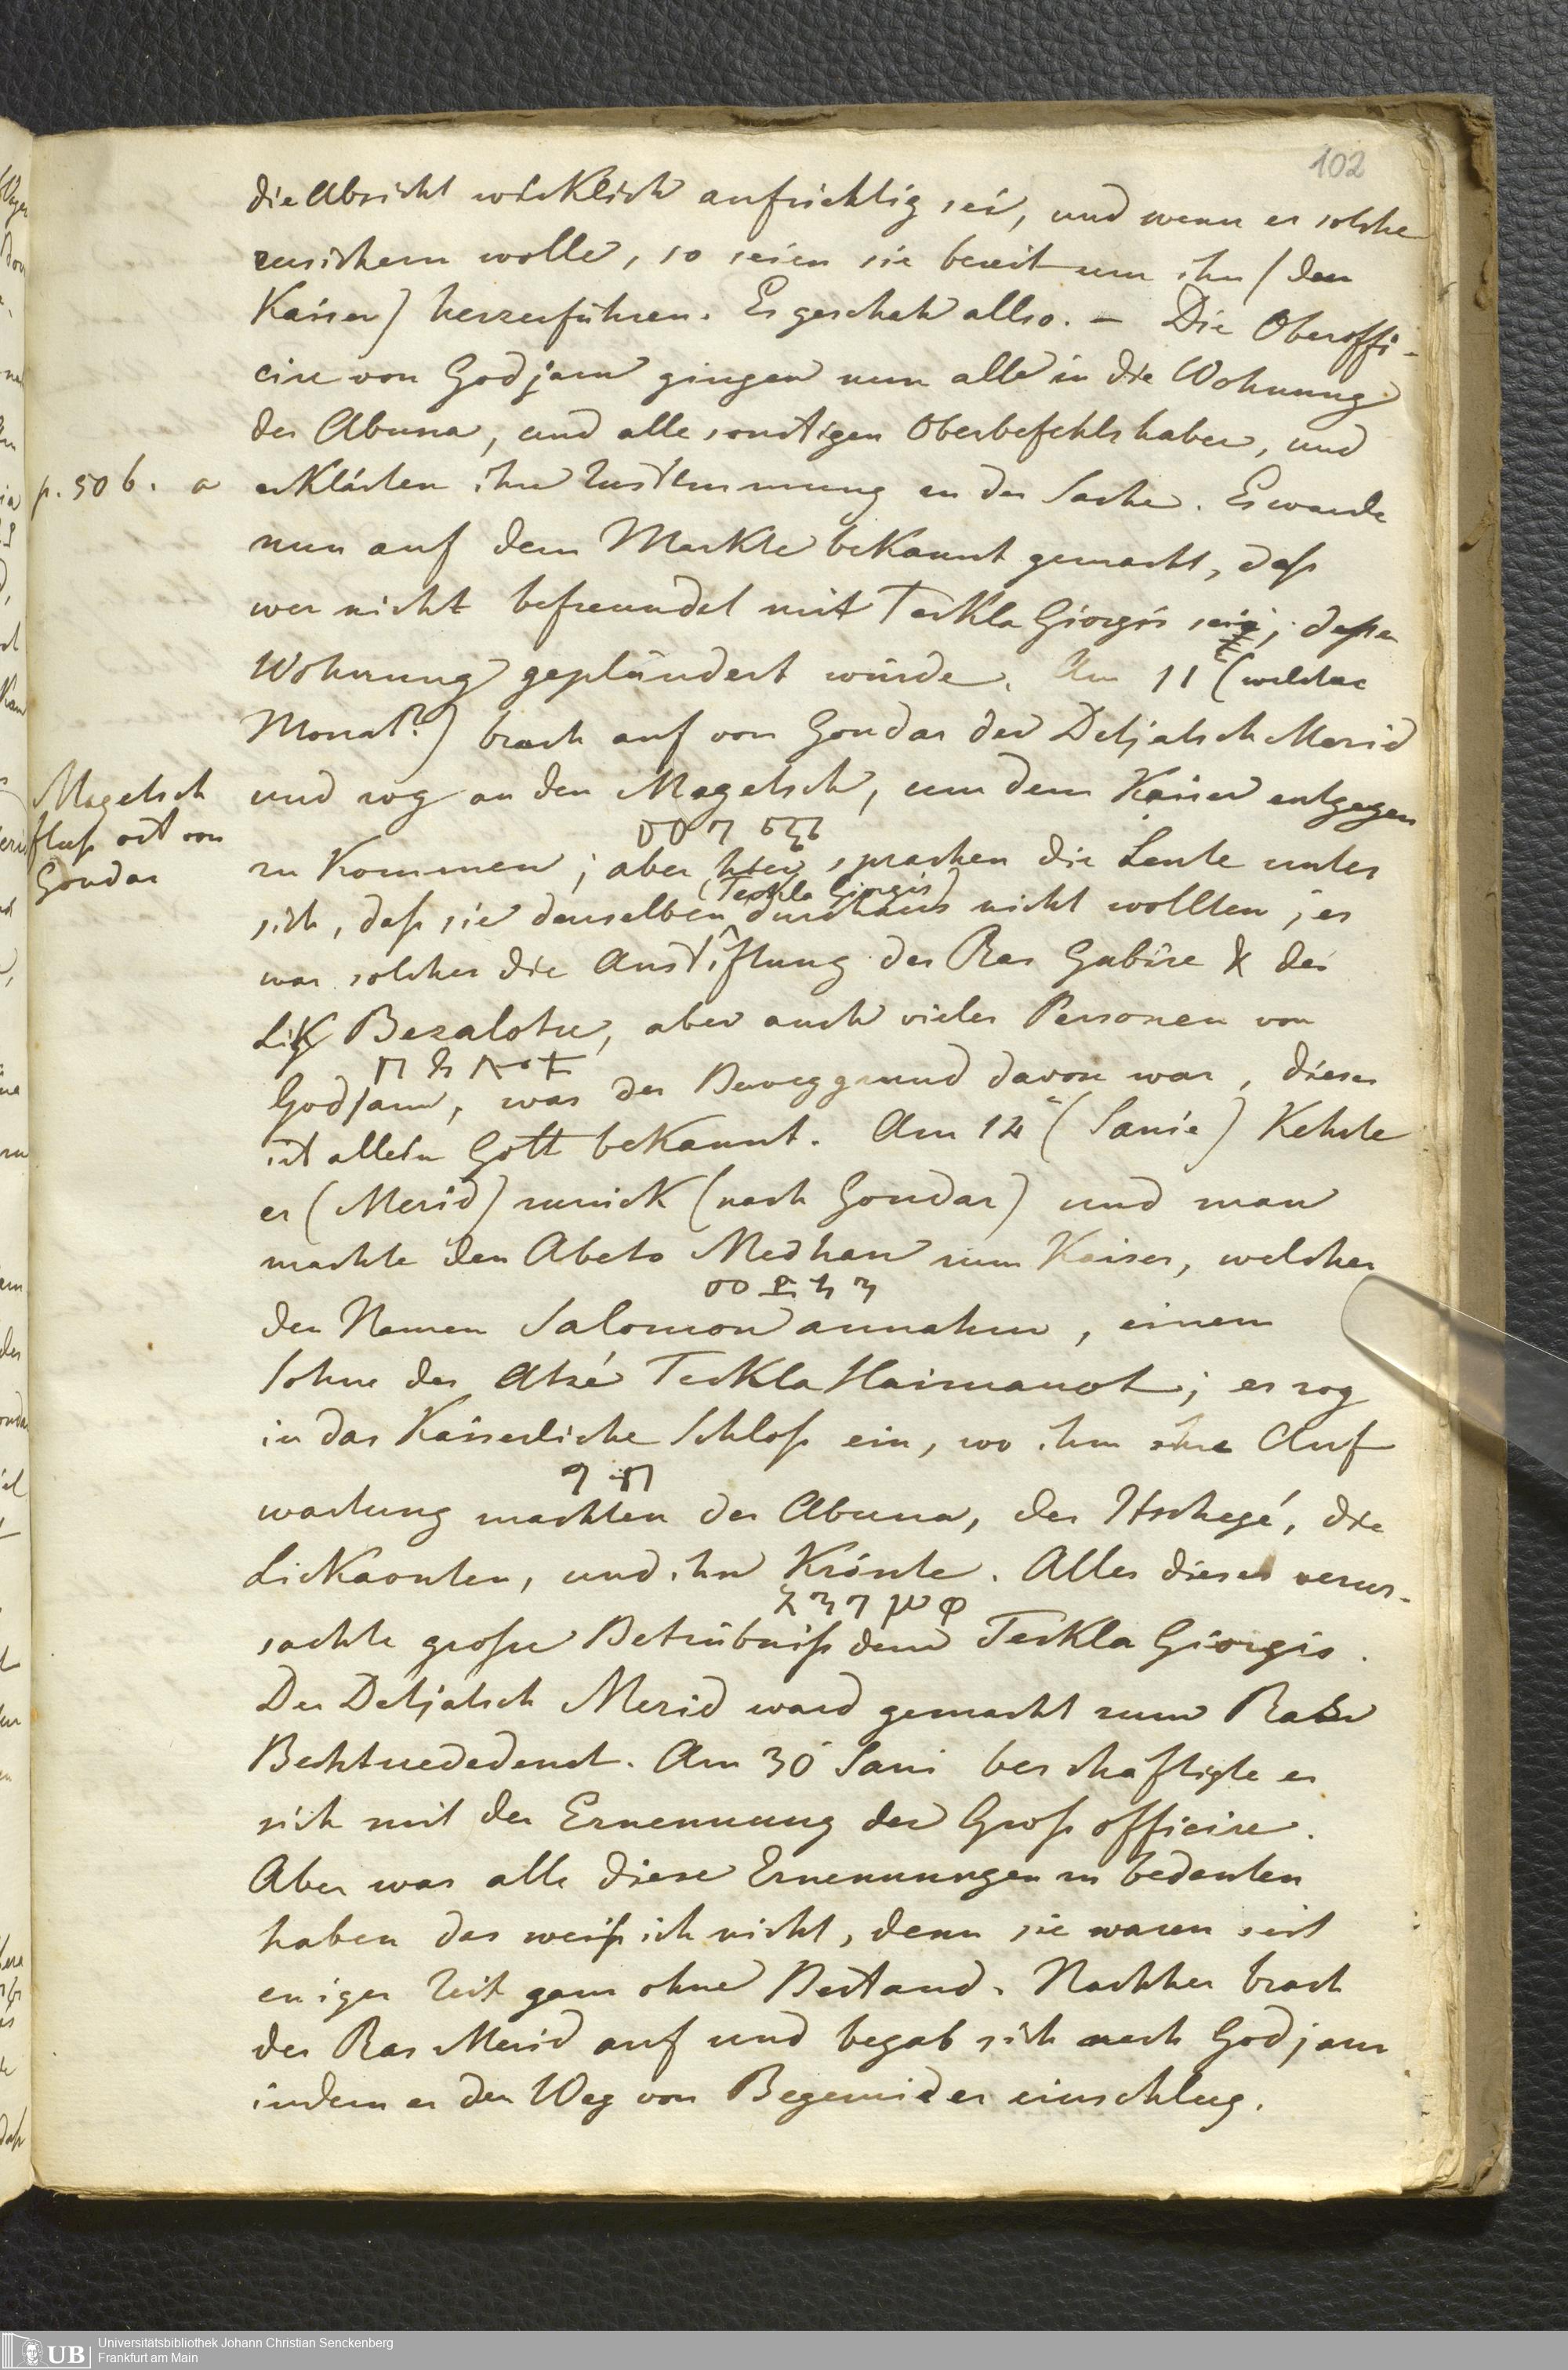 102
die Absicht wirklich aufrichtig sei, und wenn er solche
zusichern wolle, so seien sie bereit um ihn (den
Kaiser) herzuführen. Es geschah allso. – Die Oberoffi-
cire von Godjam gingen nun alle in die Wohnung
des Abuna, und alle sonstigen Oberbefehlshaber, und
p. 50 b. a
erklärten ihre Zustimmung zu der Sache. Es wurde
nun auf dem Markte bekannt gemacht, daß
wer nicht befreundet mit Teckla Giorgis sei, dessen
Wohnung geplündert würde. Am 11 (welcher
Monat?) brach auf von Gondar der Detjatsch Merid
Magetsch
fluß ost von
Gondar
und zog an den Magetsch, um dem Kaiser entgegen
zu kommen; aber hier sprachen die Leute unter
sich, daß sie denselben (Teckla Giorgis) durchaus nicht wollten; es
war solches die Anstiftung des Ras Gabire & des
Lik Bezalotu, aber auch vieler Personen von
በ ዛ ሎ ቱ
Godjam, was der Beweggrund davon war, dieses
ist allein Gott bekannt. Am 12 (Sanie) kehrte
er (Merid) zurück (nach Gondar) und man
machte den Abeto Medhan zum Kaiser, welcher
መ ድ ኃ ን
den Namen Salomon annahm, einem
Sohne des Atsé Teckla Haimanot; er zog
in das Kaiserliche Schloß ein, wo ihm ihre Auf
ግ ቢ
wartung machten der Abuna, der Itschegé, die
Lickaonten, und ihn krönte. Alles dieses verur-
አ ን ገ ሠ ው
sachte große Betrübniß dem Teckla Giorgis.
Der Detjatsch Merid ward gemacht zum Ras
Bechtuededenet. Am 30 Sani beschäftigte er
sich mit der Ernennung der Groß officire.
Aber was alle diese Ernennungen zu bedeuten
haben das weiß ich nicht, denn sie waren seit
einiger Zeit ganz ohne Bestand. Nachher brach
der Ras Merid auf und begab sich nach Godjam
indem er den Weg von Begemider einschlug.
UB
Universitätsbibliothek Johann Christian Senckenberg
Frankfurt am Main